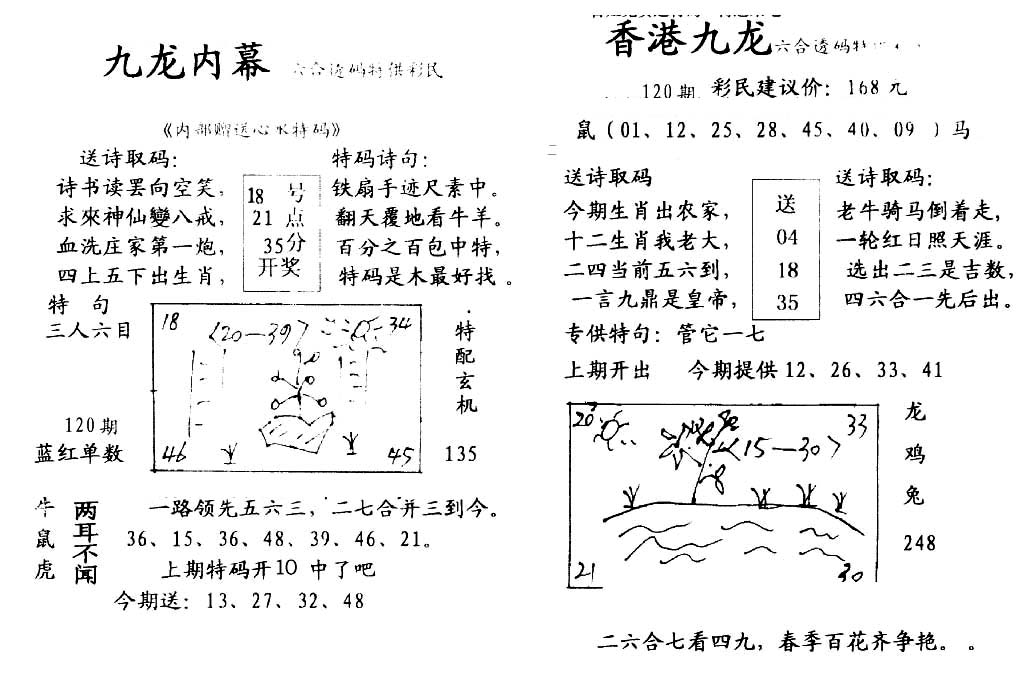 九龙内幕 六合透码特供彩民
《内部赠送心水特码》
送诗取码:
诗书读罢向空笑,
求來神仙變八戒,
血洗庄家第一炮,
四上五下出生肖,
18 号
21 点
35分
开奖
特码诗句:
铁扇手迹尺素中。
翻天覆地看牛羊。
百分之百包中特,
特码是木最好找。
特 句
三人六目
120期
蓝红单数
18
〈20—39〉
34
46
45
特配玄机
135
牛
鼠
虎
两耳不闻
一路领先五六三, 二七合并三到今。
36、15、36、48、39、46、21。
上期特码开10 中了吧
今期送: 13、27、32、48
香港九龙 六合透码特
120期. 彩民建议价: 168 元
鼠 (01、12、25、28、45、40、09 ) 马
送诗取码
今期生肖出农家,
十二生肖我老大,
二四当前五六到,
一言九鼎是皇帝,
送
04
18
35
送诗取码:
老牛骑马倒着走,
一轮红日照天涯。
选出二三是吉数,
四六合一先后出。
专供特句: 管它一七
上期开出 今期提供 12、26、33、41
20
33
〈15—30〉
21
30
龙
鸡
兔
248
二六合七看四九, 春季百花齐争艳。 。